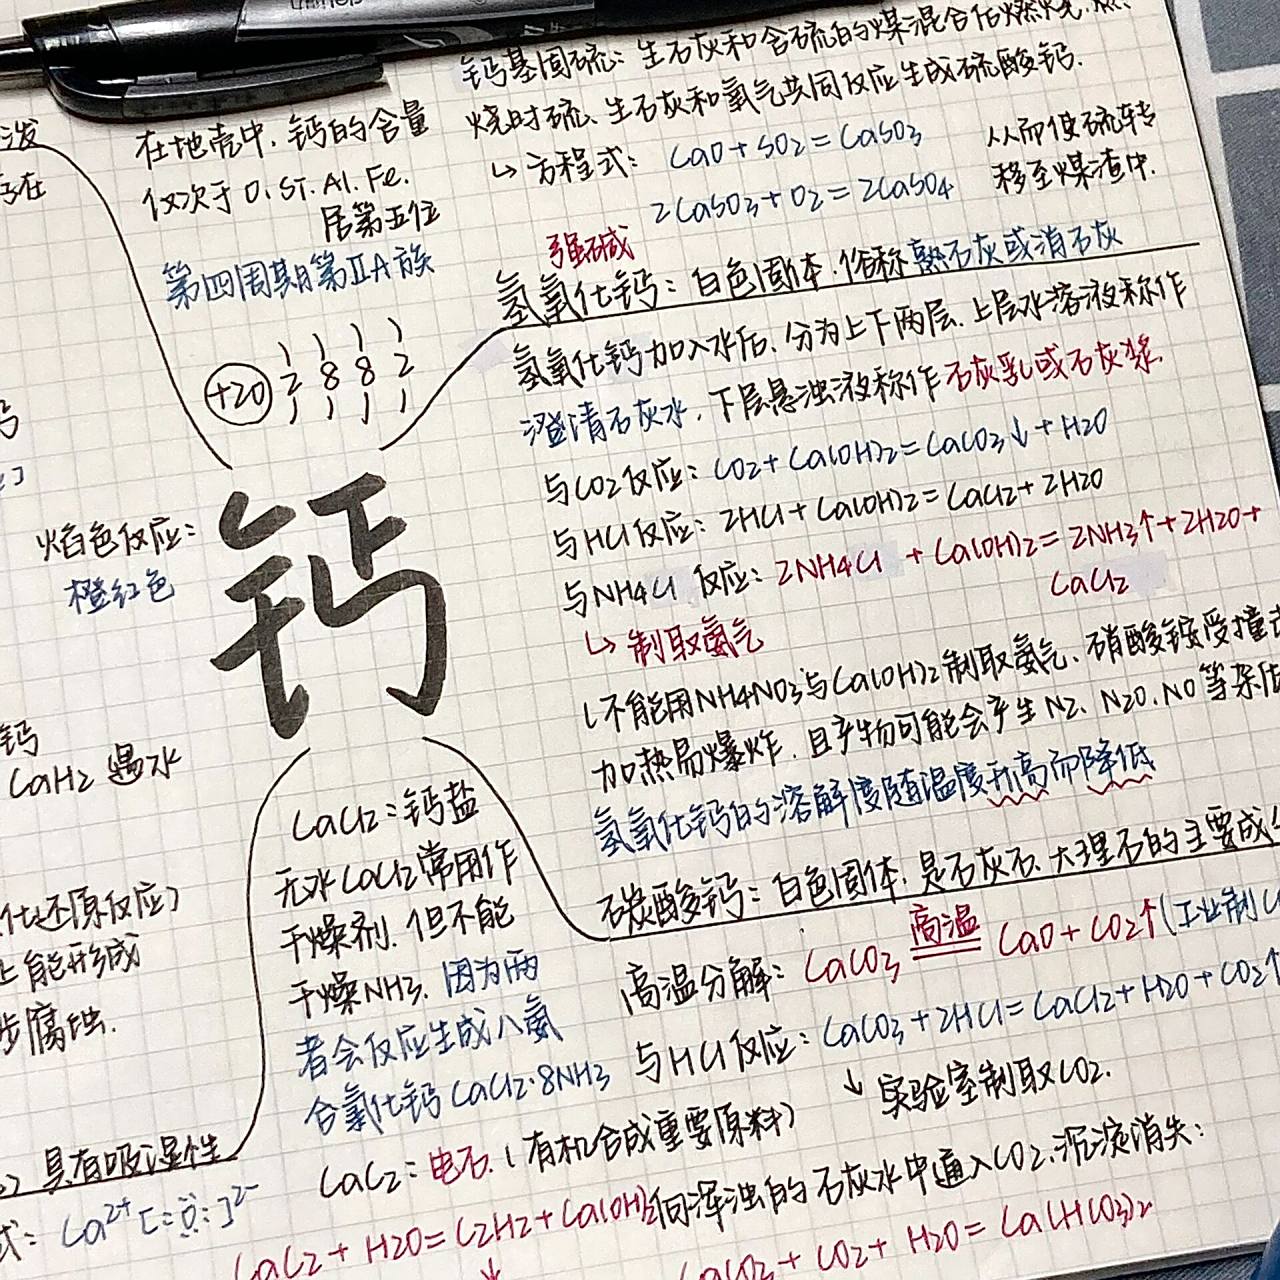 钙基固硫：生石灰和含硫的煤混合后燃烧.燃
烧时硫、生石灰和氧气共同反应生成硫酸钙.
↳ 方程式： CaO+SO2=CaSO3
2CaSO3+O2=2CaSO4
从而使硫转
移至煤渣中.
在地壳中,钙的含量
仅次于O.ST.Al.Fe.
居第五位
第四周期第ⅡA族
+20 2 8 8 2
钙
焰色反应：
橙红色
强碱
氢氧化钙：白色固体.俗称熟石灰或消石灰
氢氧化钙加入水后.分为上下两层.上层水溶液称作
澄清石灰水.下层悬浊液称作石灰乳或石灰浆.
与CO2反应：CO2+Ca(OH)2=CaCO3↓+H2O
与HCl反应：2HCl+Ca(OH)2=CaCl2+2H2O
与NH4Cl 反应：2NH4Cl +Ca(OH)2=2NH3↑+2H2O+
CaCl2
↳ 制取氨气
(不能用NH4NO3与Ca(OH)2制取氨气.硝酸铵受撞击
加热易爆炸.且产物可能会产生N2、N2O.NO等杂质
氢氧化钙的溶解度随温度升高而降低
碳酸钙：白色固体.是石灰石.大理石的主要成分
高温分解：CaCO3 高温 CaO+CO2↑(工业制C
与HCl反应：CaCO3+2HCl=CaCl2+H2O+CO2↑
↓ 实验室制取CO2.
向浑浊的石灰水中通入CO2.沉淀消失：
CaCO3+CO2+H2O=Ca(HCO3)2
CaCl2：钙盐
无水CaCl2常用作
干燥剂.但不能
干燥NH3.因为两
者会反应生成八氨
合氯化钙CaCl2·8NH3
CaC2：电石.(有机合成重要原料)
CaC2+H2O=C2H2+Ca(OH)2
↓
泼
存在
钙
钙
CaH2 遇水
化还原反应)
上能形成
步腐蚀.
具有吸湿性
式：Ca²⁺[:Ö:]²⁻